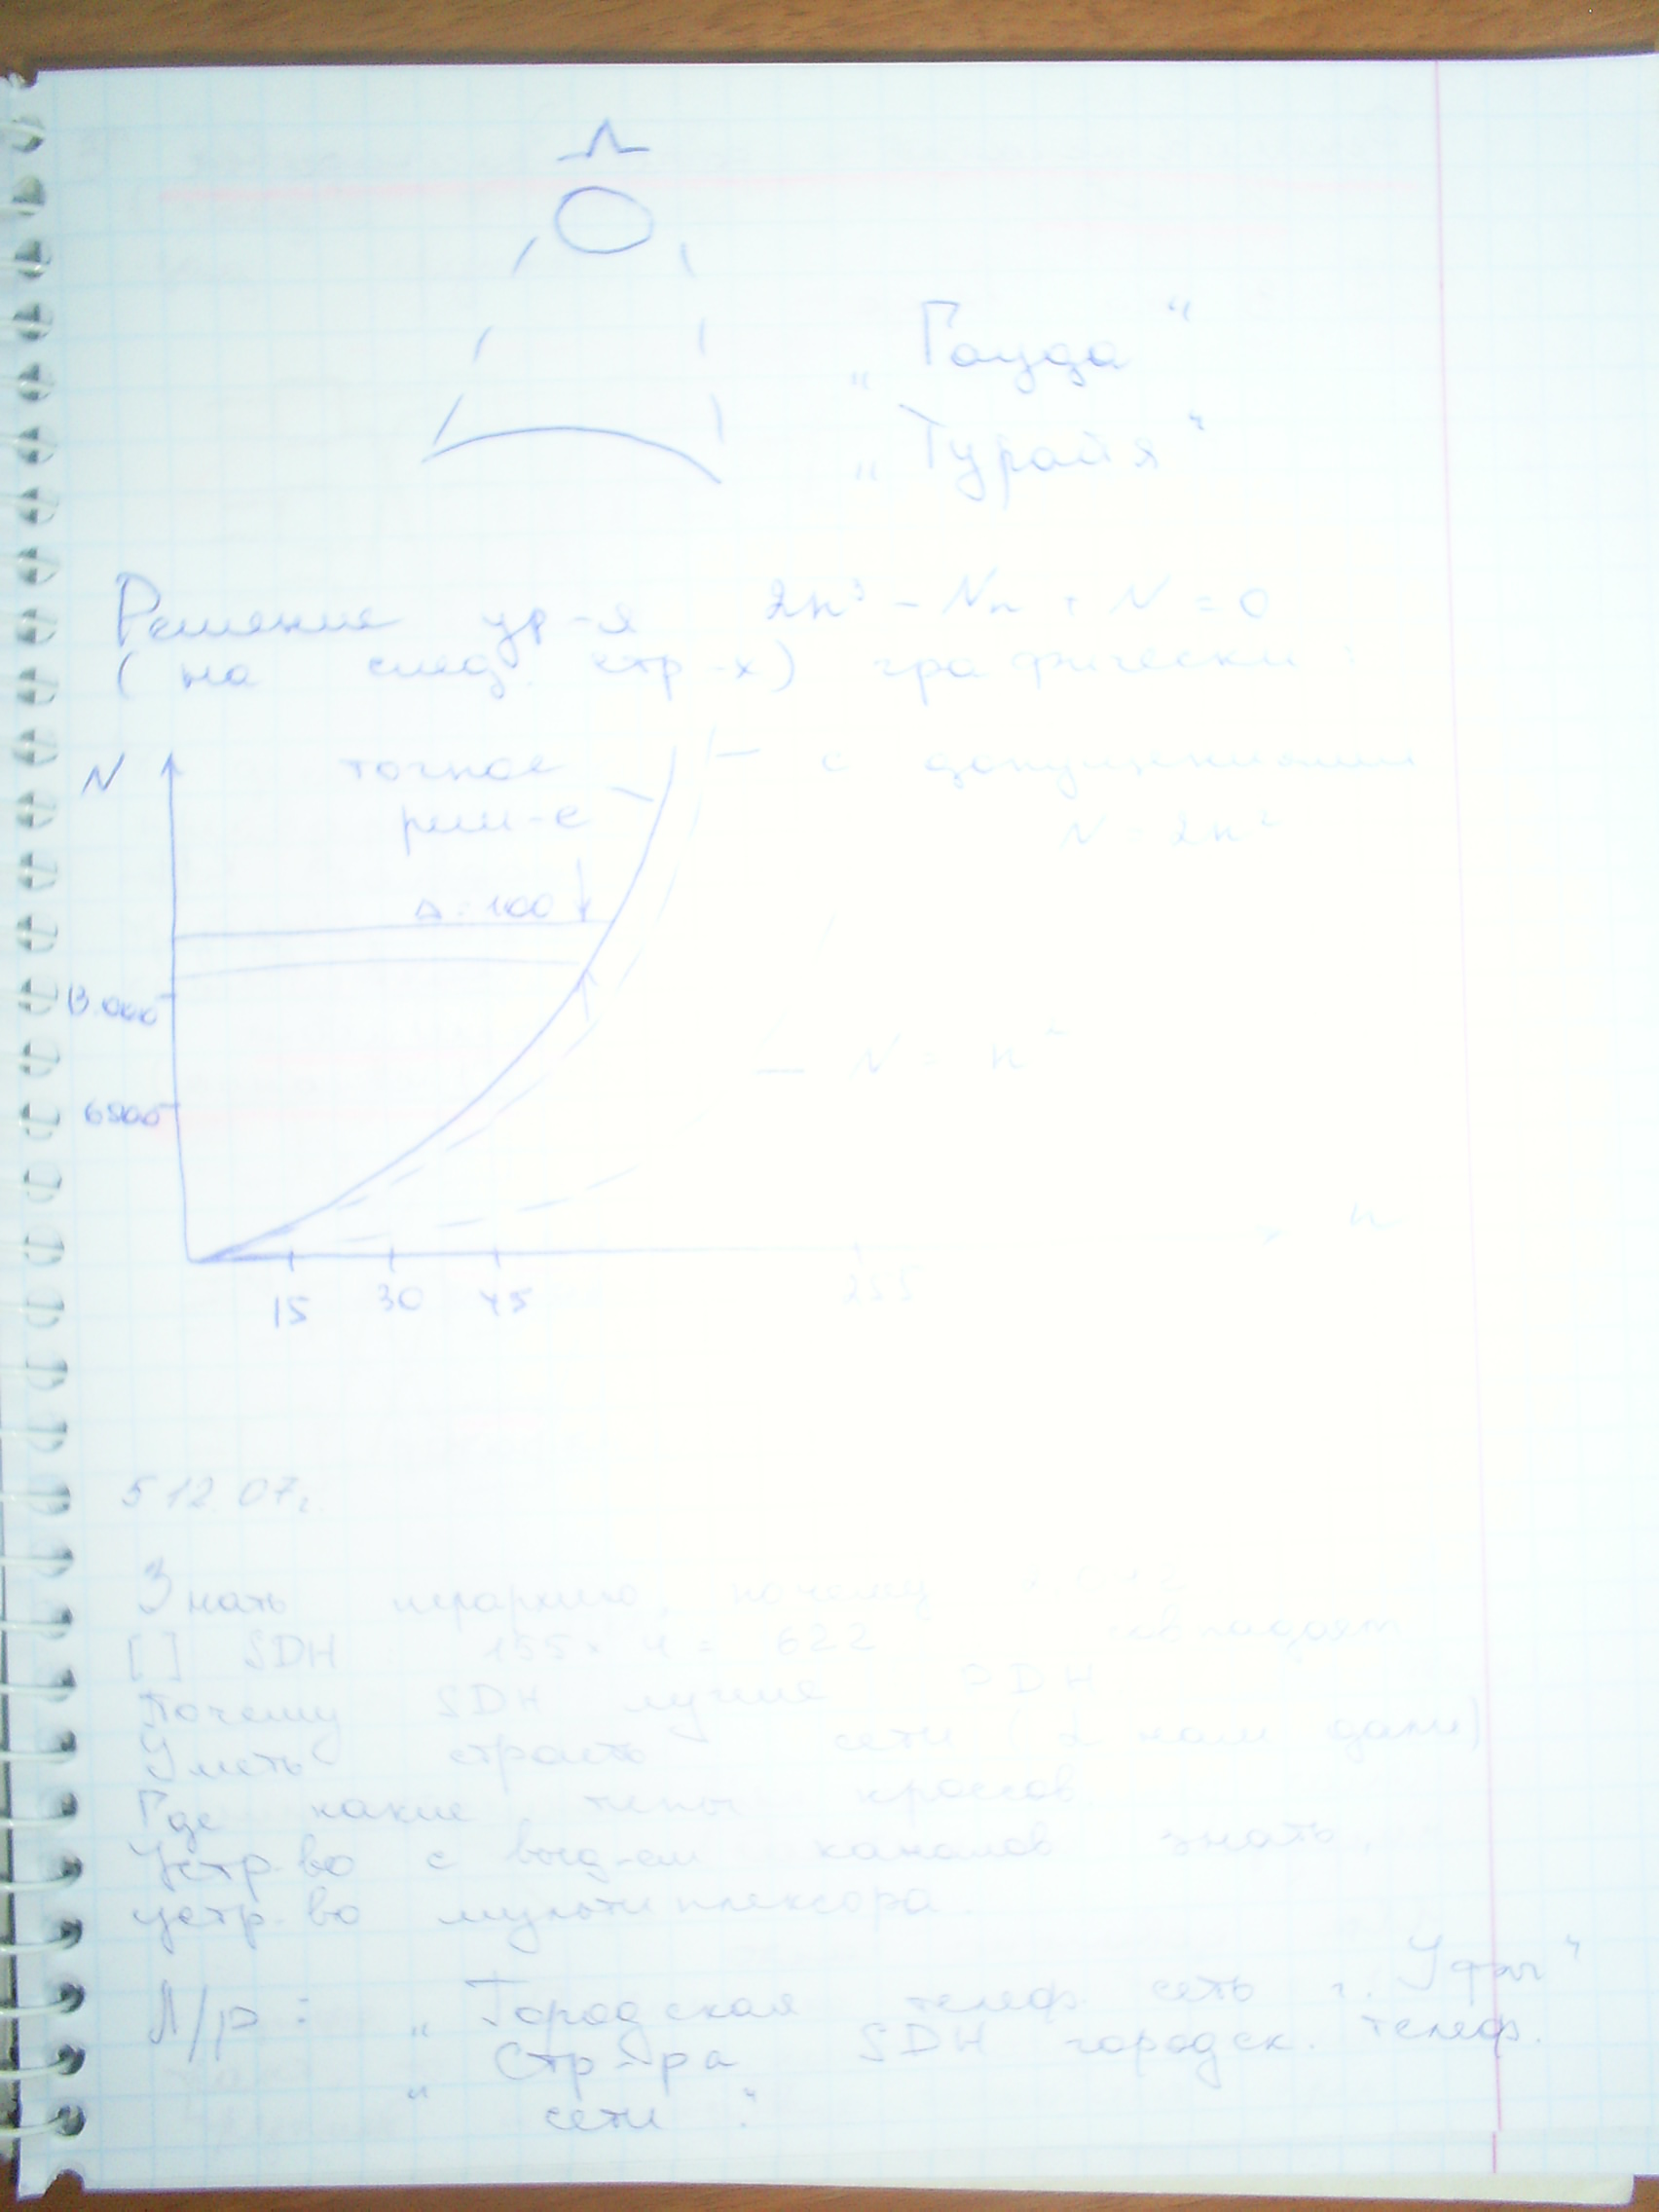 „Гауда“
„Турайя“
Решение ур-я 2n³ - Nn + N = 0
(на след. стр-х) графически:
N
точное
реш-е
с допущениями
N = 2n²
Δ = 400
13.000
N = n²
6500
n
15 30 45 255
5.12.07г.
Знать иерархию, почему
[ ] SDH 155 · 4 = 622 совпадает
Почему SDH лучше PDH
Уметь строить сети (2 нам дали)
Где какие типы кроссов
Устр-во с выд-ем каналов знать.
устр-во мультиплексора.
Л/р: „Городская телеф. сеть г. Уфы“
„Стр-ра SDH городск. телеф.
сети“